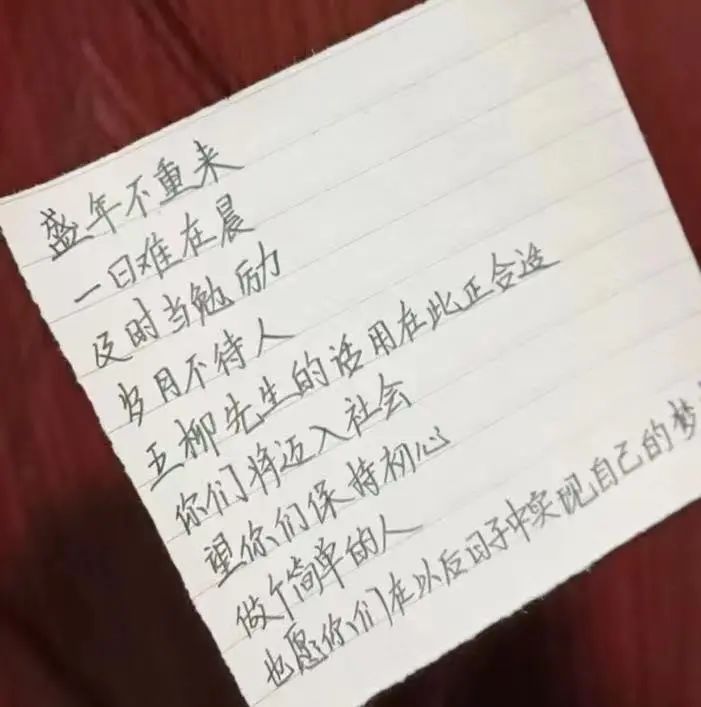 盛年不重来
一日难在晨
及时当勉励
岁月不待人
五柳先生的话用在此正合适
你们将迈入社会
望你们保持初心
做个简单的人
也愿你们在以后日子中实现自己的梦